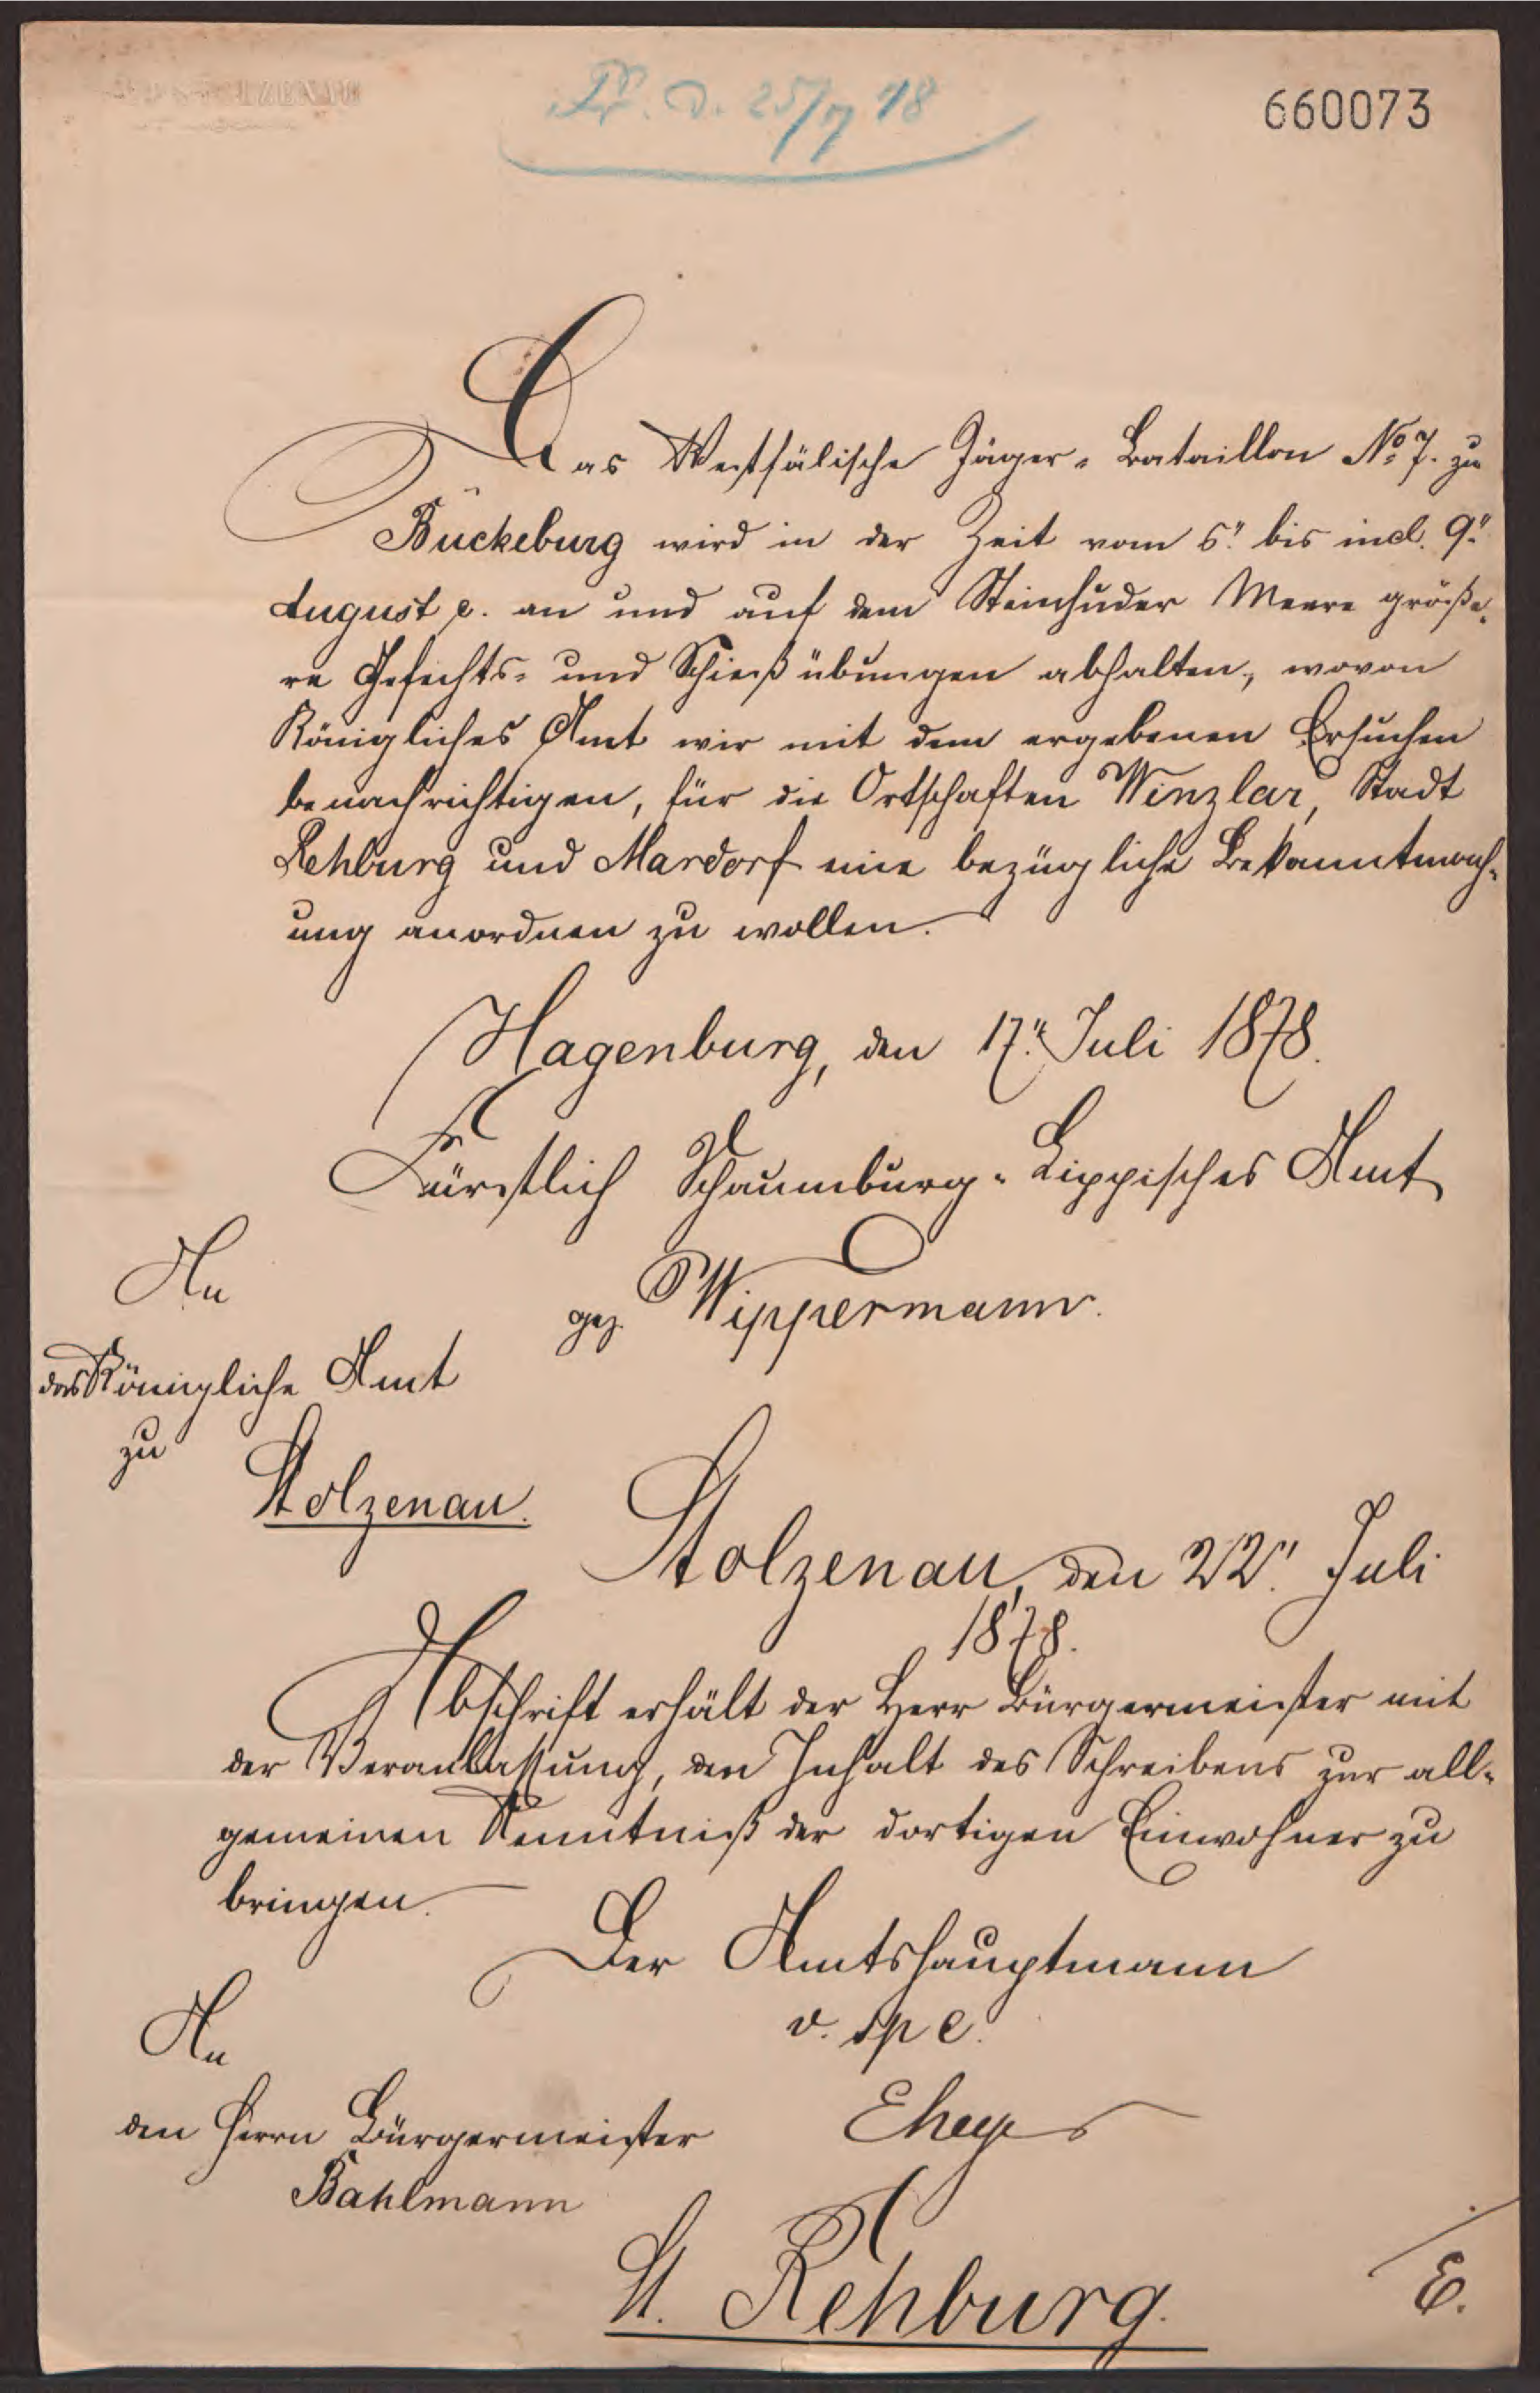 Pr. d. 25/7 78
660073
Das Westfälische Jäger-Bataillon No 7. zu
Bückeburg wird in der Zeit vom 5" bis incl. 9"
August c. an und auf dem Steinhuder Meere größe-
re Gefechts- und Schießübungen abhalten, wovon
Königliches Amt wir mit dem ergebenen Ersuchen
benachrichtigen, für die Ortschaften Winzlar, Stadt
Rehburg und Mardorf eine bezügliche Bekanntmach-
ung anordnen zu wollen.
Hagenburg, den 17" Juli 1878.
Fürstlich Schaumburg-Lippisches Amt
gez. Wippermann.
An
das Königliche Amt
zu
Stolzenau.
Stolzenau, den 22" Juli
1878.
Abschrift erhält der Herr Bürgermeister mit
der Veranlassung, den Inhalt des Schreibens zur all-
gemeinen Kenntniß der dortigen Einwohner zu
bringen.
Der Amtshauptmann
An
den Herrn Bürgermeister
Bahlmann
St. Rehburg.
E.